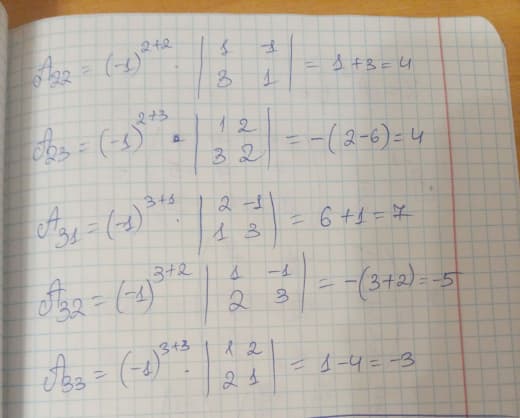 A₂₂ = (-1)²⁺² · | 1 -1 ; 3 1 | = 1+3=4
A₂₃ = (-1)²⁺³ · | 1 2 ; 3 2 | = -(2-6)=4
A₃₁ = (-1)³⁺¹ · | 2 -1 ; 1 3 | = 6+1=7
A₃₂ = (-1)³⁺² | 1 -1 ; 2 3 | = -(3+2)=-5
A₃₃ = (-1)³⁺³ · | 1 2 ; 2 1 | = 1-4=-3